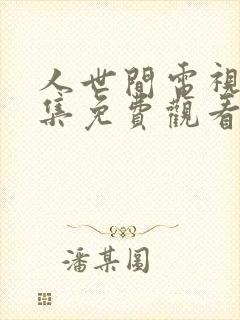 人世間電視
集免費觀看
潘某圓